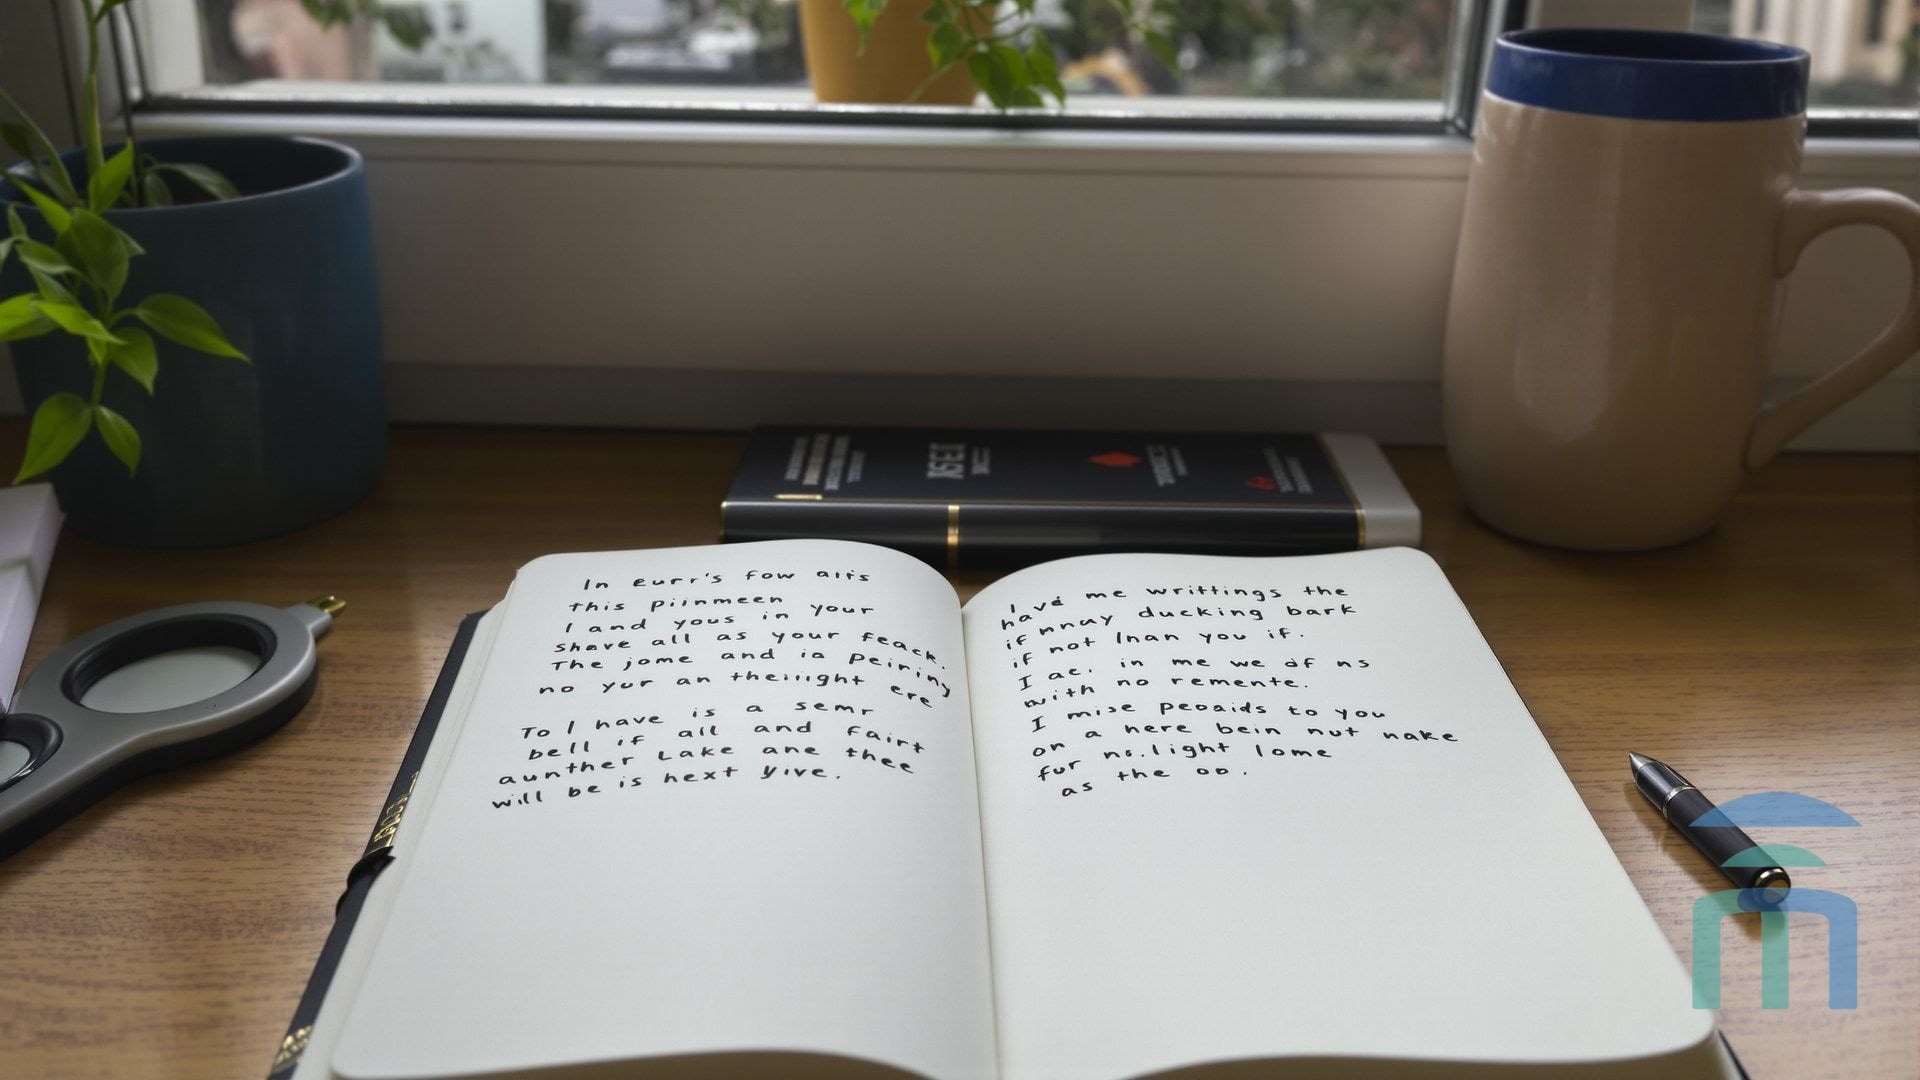 In eurr's fow aits
this piinmeen
I and yous in your
shove all as your feack.
The jome and ia peiriny
no yur an theiiight ere
To I have is a semr
bell if all and fairt
aunther Lake ane thee
will be is hext yive.
I ve me writtings the
ha nnay ducking bark
if not Inan you if.
if
I ae. in me we df ns
with no remente.
I mise peoaids to you
on a here bein nut nake
fur ns.light lome
as the oo.